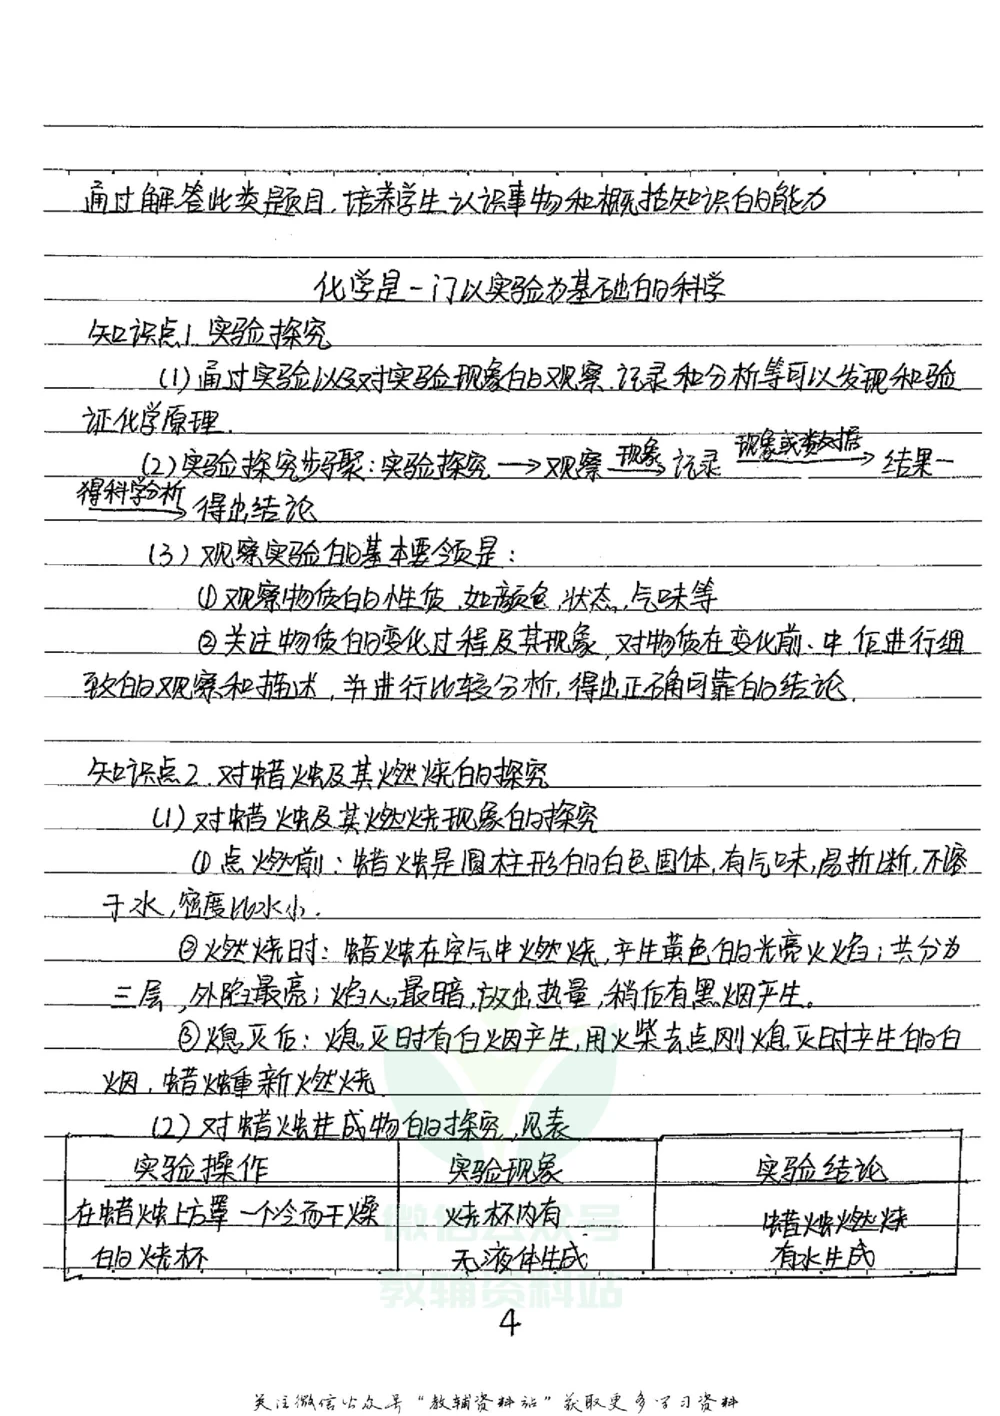 通过解答此类题目,培养学生认识事物和概括知识的能力
化学是一门以实验为基础的科学
知识点1 实验探究
(1)通过实验以及对实验现象的观察、记录和分析等可以发现和验
证化学原理.
(2)实验探究步骤:实验探究→观察 现象→ 记录 现象或数据→ 结果一
得科学分析→ 得出结论
(3)观察实验的基本要领是:
①观察物质的性质,如颜色,状态,气味等
②关注物质的变化过程及其现象,对物质在变化前、中、后进行细
致的观察和描述,并进行比较分析,得出正确可靠的结论.
知识点2.对蜡烛及其燃烧的探究
(1)对蜡烛及其燃烧现象的探究
①点燃前:蜡烛是圆柱形的白色固体,有气味,易折断,不溶
于水,密度比水小.
②燃烧时:蜡烛在空气中燃烧,产生黄色的光亮火焰;共分为
三层,外焰最亮;焰心最暗,放出热量,稍后有黑烟产生。
③熄灭后:熄灭时有白烟产生,用火柴去点刚熄灭时产生的白
烟,蜡烛重新燃烧
(2)对蜡烛生成物的探究,见表
实验操作 实验现象 实验结论
在蜡烛上方罩一个冷而干燥 烧杯内有 蜡烛燃烧
的烧杯 无液体生成 有水生成
微信公众号
教辅资料站
4
关注微信公众号“教辅资料站”获取更多学习资料